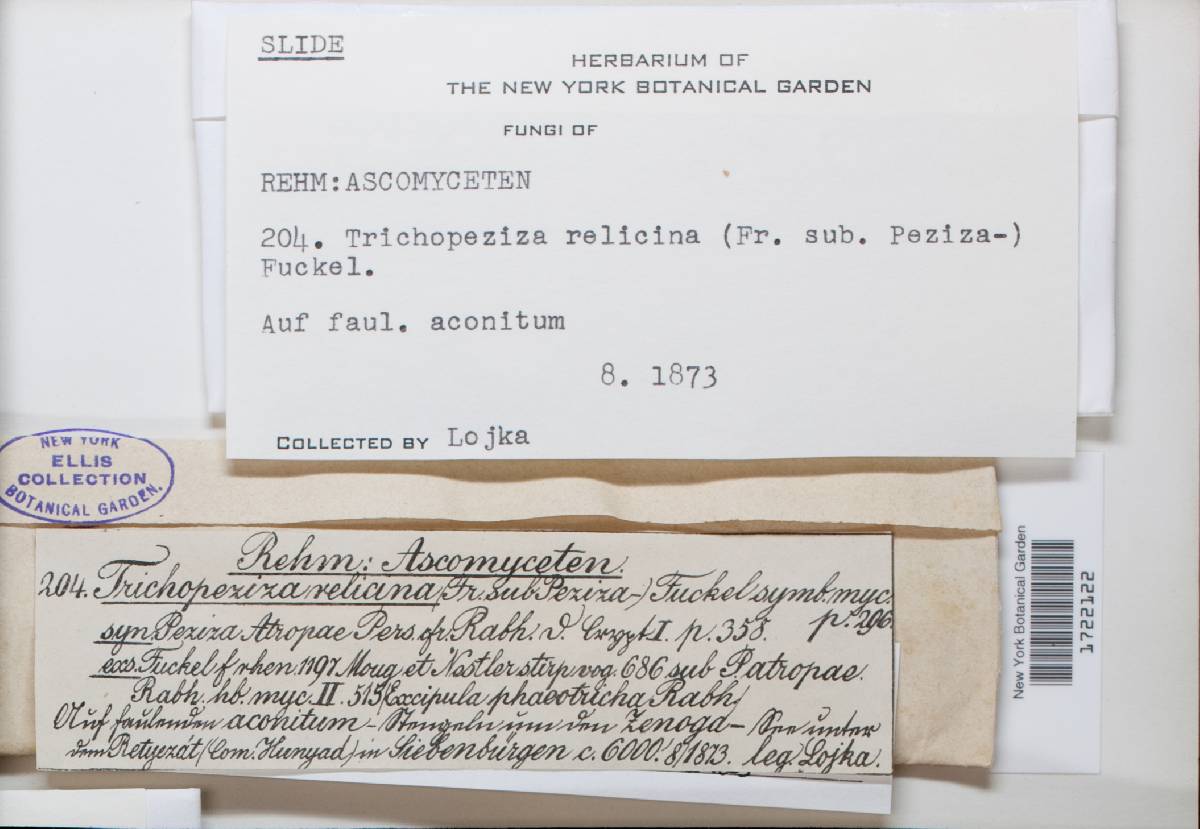 SLIDE
HERBARIUM OF
THE NEW YORK BOTANICAL GARDEN
FUNGI OF
REHM:ASCOMYCETEN
204. Trichopeziza relicina (Fr. sub. Peziza-)
Fuckel.
Auf faul. aconitum
8. 1873
COLLECTED BY Lojka
NEW YORK
ELLIS
COLLECTION
BOTANICAL GARDEN.
Rehm: Ascomyceten.
204. Trichopeziza relicina (Fr. sub Peziza-) Fuckel symb. myc.
p. 296.
syn. Peziza Atropae Pers. cfr. Rabh. D. Crypt. I. p. 358.
exs. Fuckel f. rhen. 1197 Moug et Nestler stirp. vog. 686 sub P. atropae.
Rabh. hb. myc. II. 515 (Excipula phaeotricha Rabh)
Auf faulenden aconitum-Stengeln um den Zenoga-See unter
dem Retyezát (Com. Hunyad) in Siebenbürgen c. 6000'. 8/1873. leg. Lojka.
New York Botanical Garden
1722122